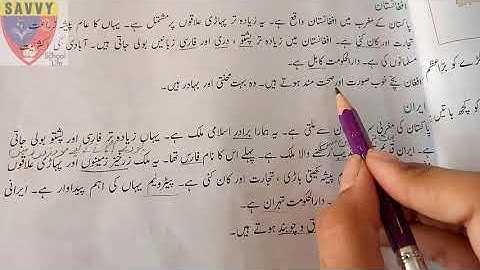 SAVVY
School
Life
افغانستان
پاکستان کے مغرب میں افغانستان واقع ہے۔ یہ زیادہ تر پہاڑی علاقوں پر مشتمل ہے۔ یہاں کا عام پیشہ زراعت
تجارت اور کان کنی ہے۔ افغانستان میں زیادہ تر پشتو ، دری اور فارسی زبانیں بولی جاتی ہیں۔ آبادی کی اکثریت
مسلمانوں کی ہے۔ دارالحکومت کابل ہے۔
افغان بچے خوب صورت اور صحت مند ہوتے ہیں۔ وہ بہت محنتی اور بہادر ہیں۔
ایران
پاکستان کی مغربی سے ملتی ہے۔ یہ ہمارا برادر اسلامی ملک ہے۔ یہاں زیادہ تر فارسی اور پشتو بولی جاتی
ہے۔ ایران رکھنے والا ملک ہے۔ پہلے اس کا نام فارس تھا۔ یہ ملک زرخیز زمینوں اور پہاڑی علاقوں
پیشہ کھیتی باڑی ، تجارت اور کان کنی ہے۔ پیٹرولیم یہاں کی اہم پیداوار ہے۔ ایرانی
دارالحکومت تہران ہے۔
و چوبند ہوتے ہیں۔
کڑے کو بر اعظم
کو کچھ باتیں